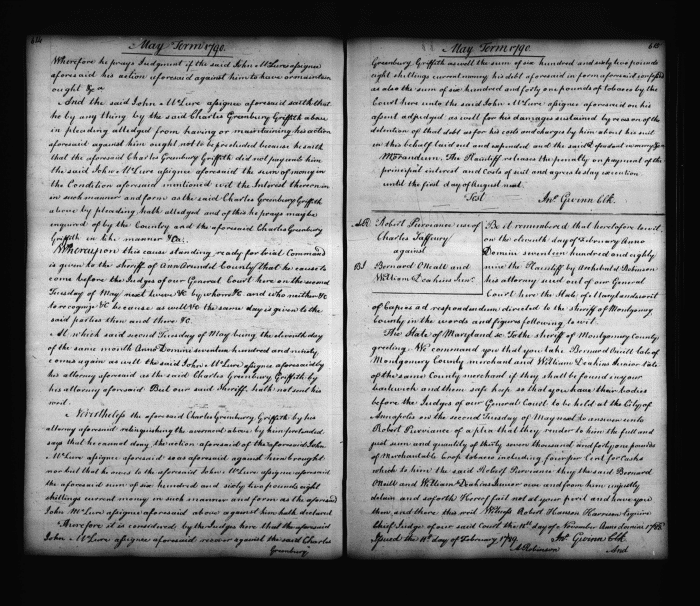 614
May Term 1790.
Wherefore he prays Judgment if the said John McLure assignee
aforesaid his action aforesaid against him to have or maintain
ought &ca
And the said John McLure assignee aforesaid saith that
he by any thing by the said Charles Greenbury Griffith above
in pleading alledged from having or maintaining his action
aforesaid against him ought not to be precluded because he saith
that the aforesaid Charles Greenbury Griffith did not pay unto him
the said John McLure assignee aforesaid the sum of money in
the Condition aforesaid mentioned with the Interest thereon in
in such manner and form as the said Charles Greenbury Griffith
above by pleading hath alledged and of this he prays may be
enquired of by the Country and the aforesaid Charles Greenbury
Griffith in like manner &Ca;
Whereupon this cause standing ready for trial Command
is given to the sheriff of Ann Arundel County that he cause to
come before the Judges of our General Court here on the second
Tuesday of May next twelve &c by whom &c and who neither &c
to recognize &c because as well &c the same day is given to the
said parties then and there &c.
At which said second Tuesday of May being the eleventh day
of the same month Anno Domini seventeen hundred and ninety
comes again as well the said John McLure assignee aforesaid by
his attorney aforesaid as the said Charles Greenbury Griffith by
his attorney aforesaid But our said Sheriff hath not sent his
writ
Nevertheless the aforesaid Charles Greenbury Griffith by his
attorney aforesaid relinquishing the averment above by him pretended
says that he cannot deny the action aforesaid of the aforesaid John
McLure assignee aforesaid as aforesaid against him brought
nor but that he owes to the aforesaid John McLure assignee aforesaid
the aforesaid sum of six hundred and sixty two pounds eight
shillings current money in such manner and form as the aforesaid
John McLure assignee aforesaid above against him hath declared
Therefore it is considered by the Judges here that the aforesaid
John McLure assignee aforesaid recover against the said Charles
Greenbury
May Term 1790.
615
Greenbury Griffith as well the sum of six hundred and sixty two pounds
eight shillings current money his debt aforesaid in form aforesaid
as also the sum of six hundred and forty one pounds of tobacco by the
Court here unto the said John McLure assignee aforesaid on his
assent adjudged as well for his damages sustained by reason of the
detention of that debt as for his costs and charges by him about his suit
in this behalf laid out and expended and the said &c
Morandum. The Plaintiff releases the penalty on payment of the
principal interest and Costs of suit and agrees to stay execution
until the first day of August next.
Test Jno. Gwinn Clk.
Robert Purviance use of
Charles Jaffeury
against
Bernard ONeill and
William Deakins Junr.
Be it remembered that heretofore to wit,
on the eleventh day of February Anno
Domini seventeen hundred and eighty
nine the Plaintiff by Archibald Robinson
his attorney sued out of our General
Court here the State of Maryland's writ
of Capias ad respondendum directed to the sheriff of Montgomery
County in the words and figures following to wit.
The State of Maryland &c To the sheriff of Montgomery County
greeting. We command you that you take Bernard Oneill late of
Montgomery County merchant and William Deakins Junior late
of the same County merchant if they shall be found in your
bailiwick and them safe keep so that you have their bodies
before the Judges of our General Court to be held at the City of
Annapolis on the second Tuesday of May next to answer unto
Robert Purviance of a plea that they render to him the full and
just sum and quantity of thirty seven thousand and forty one pounds
of Merchantable Crop tobacco including four per Cent for Casks
which to him the said Robert Purviance they the said Bernard
Oneill and William Deakins Junior owe and from him unjustly
detain and so forth Hereof fail not at your peril and have you
then and there this writ Witness Robert Hanson Harrison Esquire
Chief Judge of our said Court the 11th. day of November Anno Domini 1788.
Issued the 11th. day of February 1789. Jno. Gwinn Clk
A Robinson And